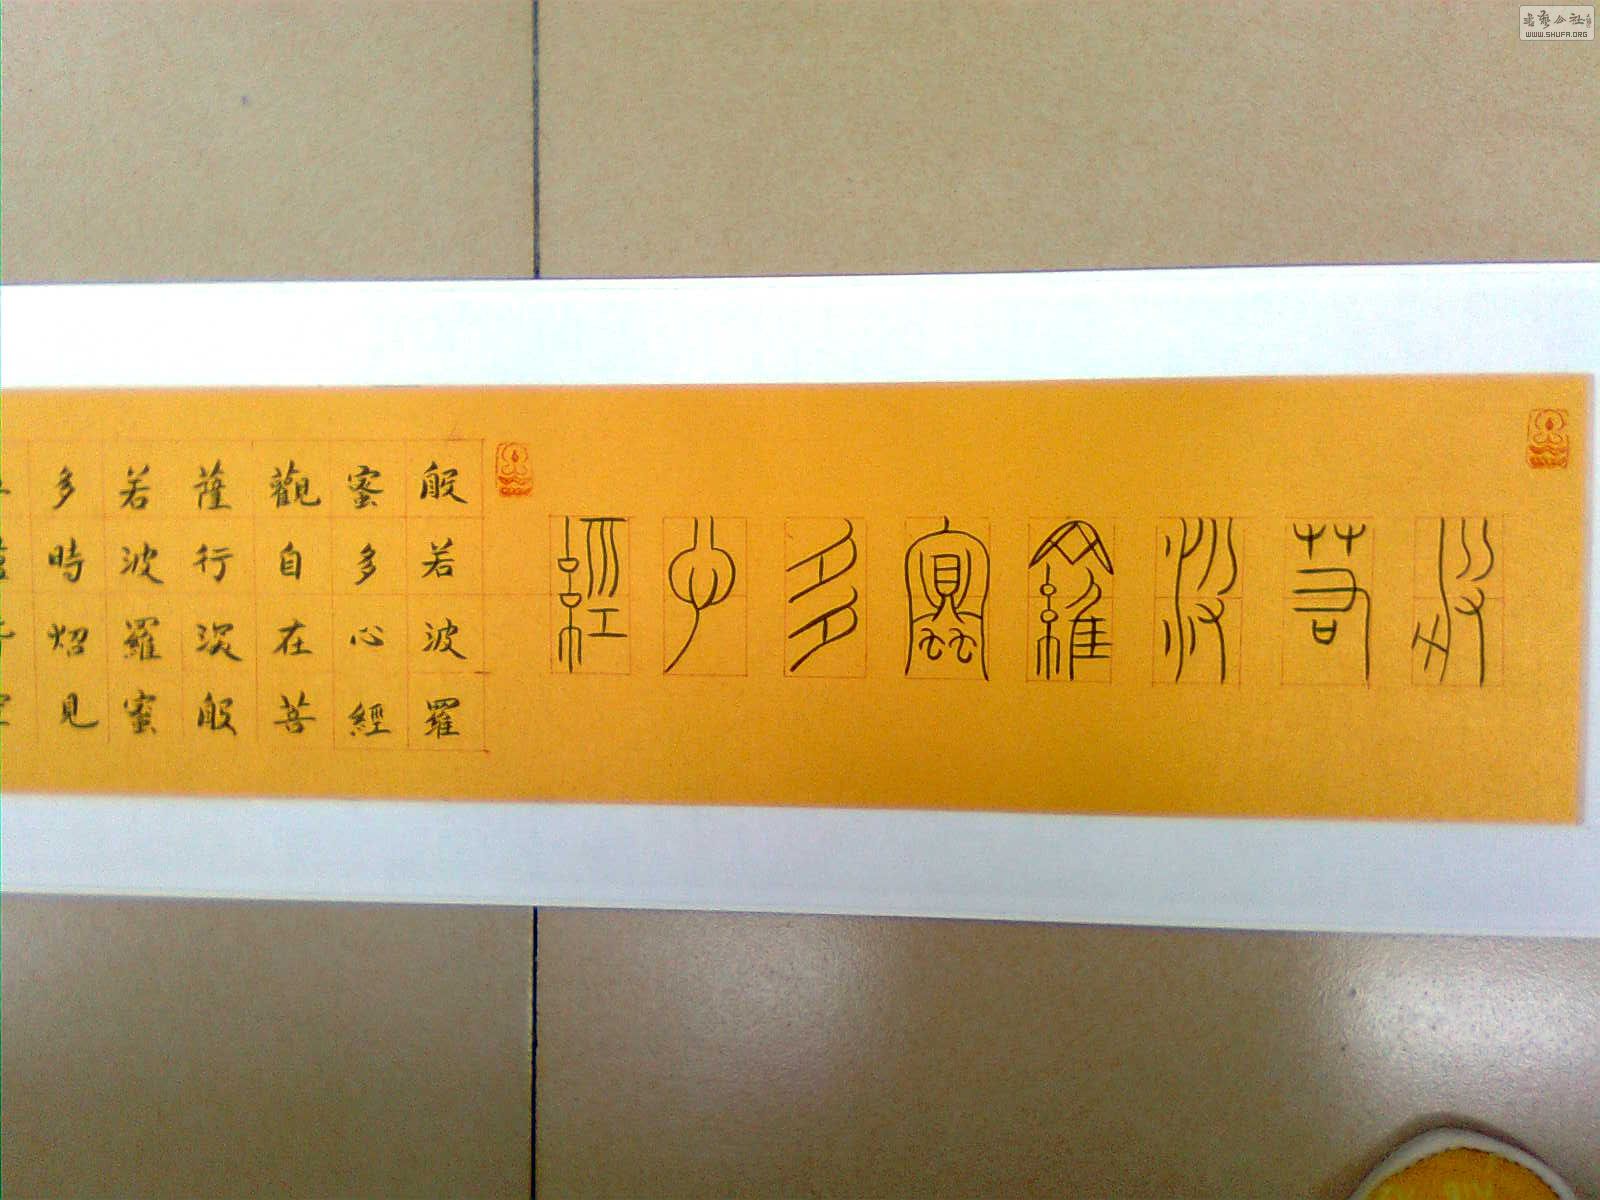 般若波羅蜜多心經
般若波羅
蜜多心經
觀自在菩
薩行深般
若波羅蜜
多時炤見
WWW.SHUFA.ORG